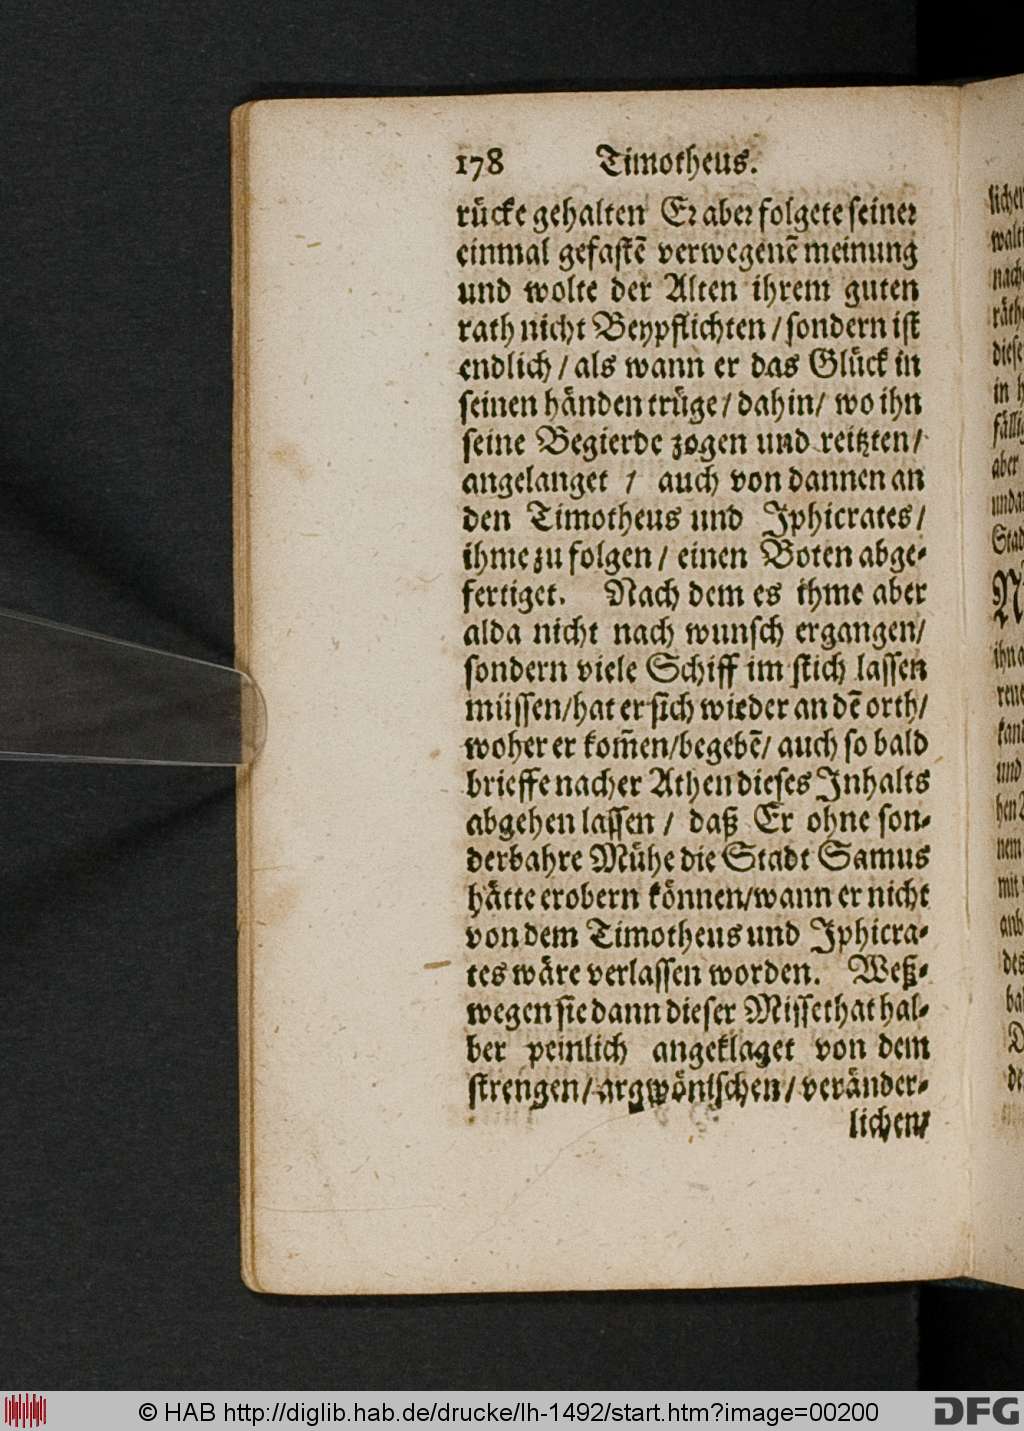 178 Timotheus.
rücke gehalten Er aber folgete seiner
einmal gefastē verwegenē meinung
und wolte der Alten ihrem guten
rath nicht Beypflichten / sondern ist
endlich / als wann er das Glück in
seinen händen trüge / dahin / wo ihn
seine Begierde zogen und reitzten /
angelanget / auch von dannen an
den Timotheus und Iphicrates /
ihme zu folgen / einen Boten abge-
fertiget. Nach dem es ihme aber
alda nicht nach wunsch ergangen /
sondern viele Schiff im stich lassen
müssen / hat er sich wieder an dē orth /
woher er kom̄en / begebē / auch so bald
brieffe nacher Athen dieses Inhalts
abgehen lassen / daß Er ohne son-
derbahre Mühe die Stadt Samus
hätte erobern können / wann er nicht
von dem Timotheus und Iphicra-
tes wäre verlassen worden. Weß-
wegen sie dann dieser Missethat hal-
ber peinlich angeklaget von dem
strengen / argwönischen / veränder-
lichen /
© HAB http://diglib.hab.de/drucke/lh-1492/start.htm?image=00200
DFG